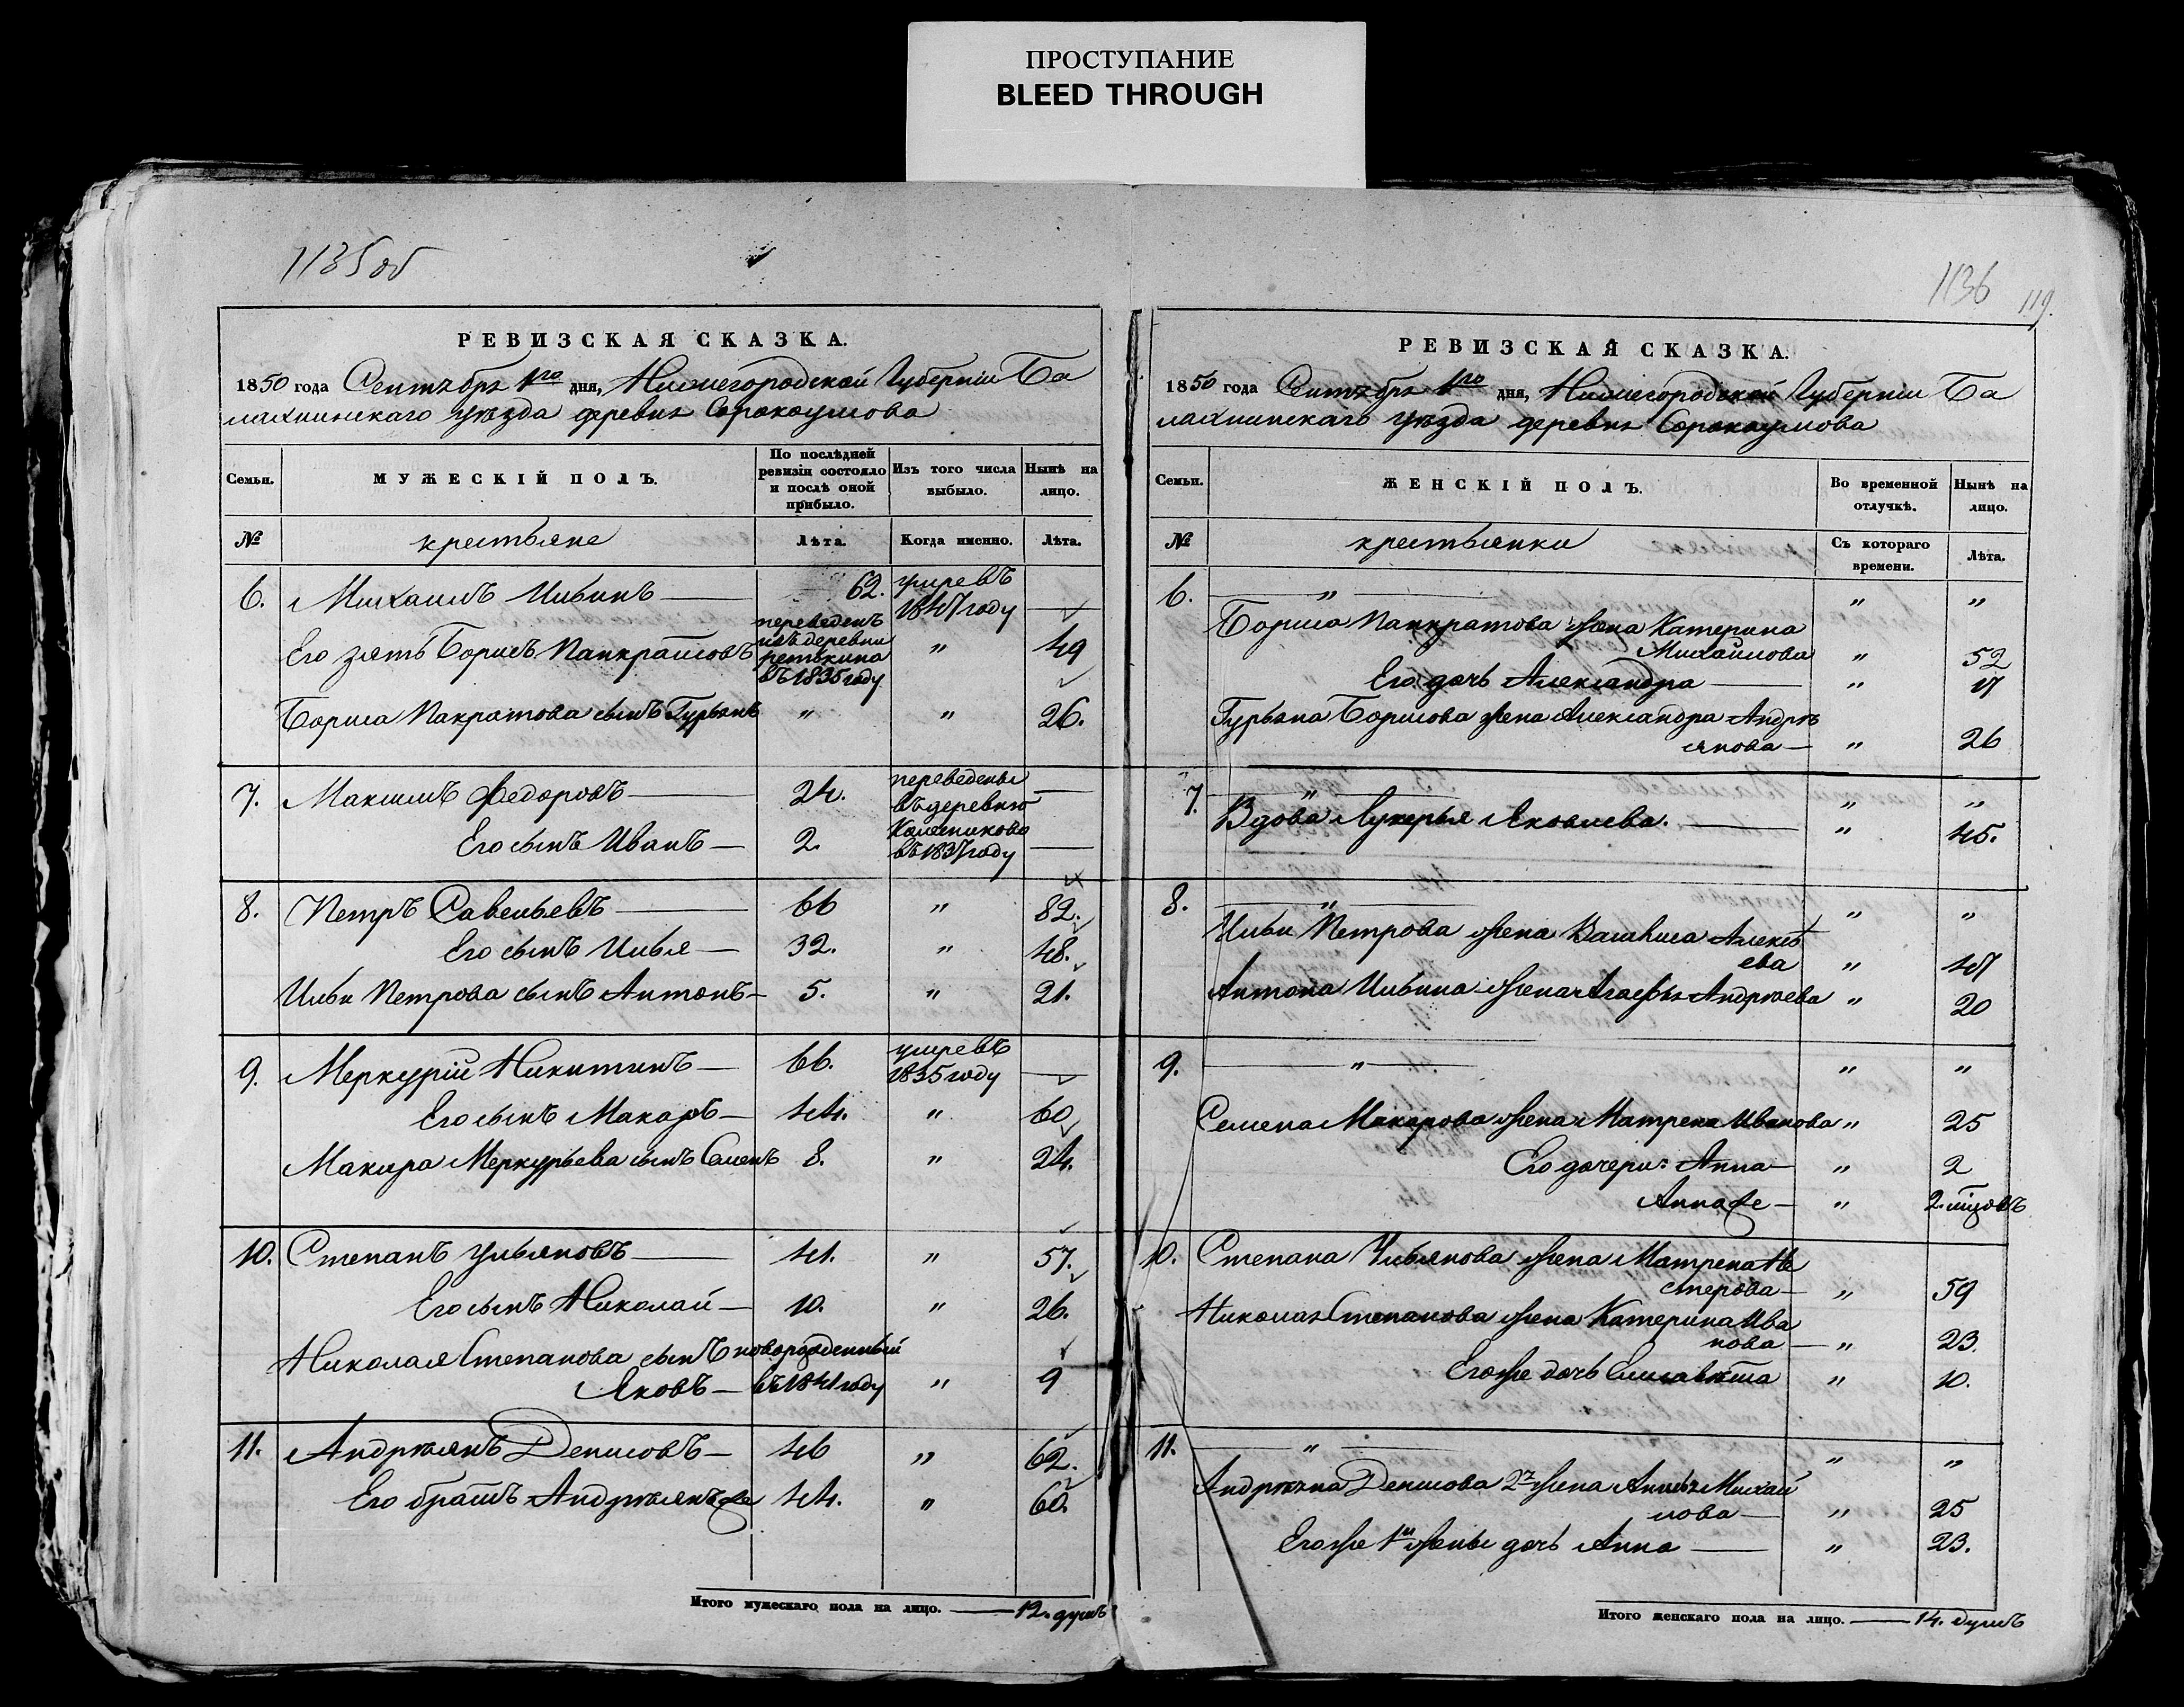 ПРОСТУПАНИЕ
BLEED THROUGH
1135 об
РЕВИЗСКАЯ СКАЗКА.
1850 года Сентября 1го дня, Нижегородской Губернiи Ба
лахнинскаго уѣзда деревни Сорокоумова
Семьи.
МУЖЕСКIЙ ПОЛЪ.
По послѣдней ревизiи состояло и послѣ оной прибыло.
Изъ того числа выбыло.
Нынѣ на лицо.
№ крестьяне Лѣта. Когда именно. Лѣта.
6. Михаилъ Ильинъ — 62. умревъ 1847 году —
Его зять Борисъ Панкратовъ переведенъ изъ деревни въ 1835 году " 49
Бориса Пакратова сынъ Гурьянъ " " 26.
7. Максимъ Федоровъ — 24. переведены —
въ деревню
Его сынъ Иванъ — 2. въ 1837 году —
8. Петръ Савельевъ — 66 " 82.
Его сынъ Илья — 32. " 48.
Ильи Петрова сынъ Антонъ — 5. " 21.
9. Меркурiй Никитинъ — 66. умревъ 1835 году —
Его сынъ Макаръ — 44. " 60
Макара Меркурьева сынъ Семенъ 8. " 24.
10. Степанъ Ульяновъ — 41. " 57.
Его сынъ Николай — 10. " 26.
Николая Степанова сынъ новорожденный
Яковъ — въ 1841 году " 9
11. Андреянъ Денисовъ — 46 " 62.
Его братъ Андреянъ же 44. " 60.
Итого мужескаго пола на лицо. — 12. душъ
1136 119.
РЕВИЗСКАЯ СКАЗКА.
1850 года Сентября 1го дня, Нижегородской Губернiи Ба
лахнинскаго уѣзда деревни Сорокоумова
Семьи.
ЖЕНСКIЙ ПОЛЪ.
Во временной отлучкѣ.
Нынѣ на лицо.
№ крестьянки Съ котораго времени. Лѣта.
6. — " — " "
Бориса Панкратова жена Катерина
Михайлова " 52
Его дочь Александра — " 17
Гурьяна Борисова жена Александра Андре
янова — " 26
7. — " — " "
Вдова Лукерья Яковлева. — " 45.
8. — " — " "
Ильи Петрова жена Василиса Алексѣ
ева " 47
Антона Ильина жена Агафья Андреева " 20
9. — " — " "
Семена Макарова жена Матрена Иванова " 25
Его дочери: Анна — " 2
Анна же — " 2. мцовъ
10. Степана Ульянова жена Матрена Не
стерова — " 59
Николая Степанова жена Катерина Ива
нова — " 23.
Его же дочь Елисавета " 10.
11. — " — " "
Андреяна Денисова 2я жена Михай
лова — " 25
Его же 1й жены дочь Анна — " 23.
Итого женскаго пола на лицо. — 14. душъ